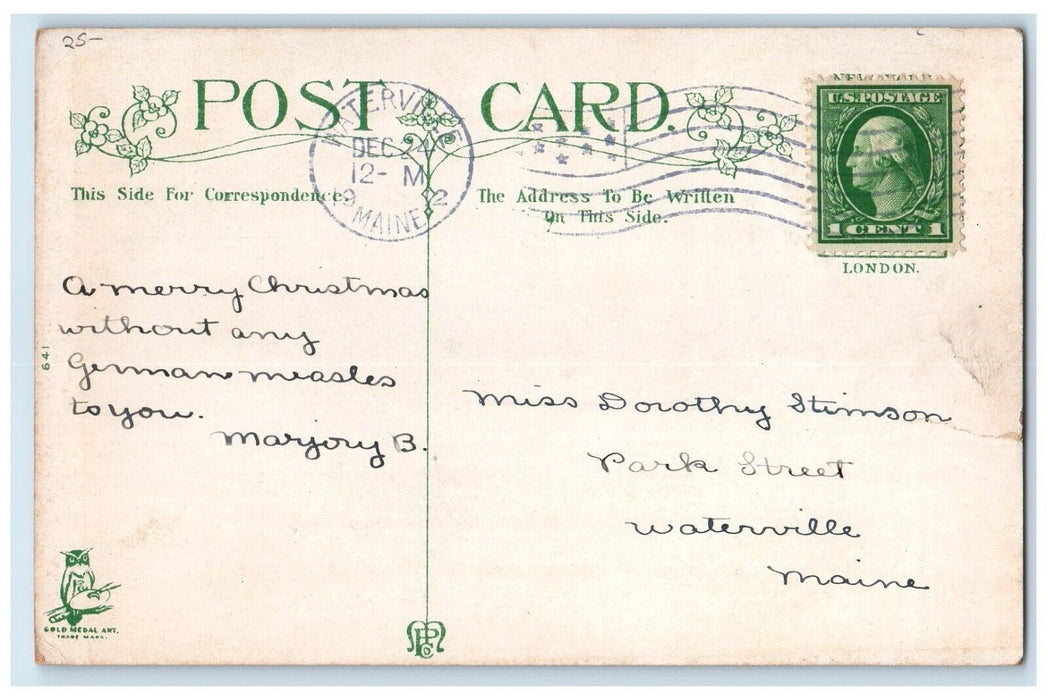 25-
POST CARD.
WATERVILLE
DEC 24
12- M
19 2
MAINE
This Side For Correspondence.
The Address To Be Written
On This Side.
NEW YORK
U.S. POSTAGE
1 CENT 1
LONDON.
A merry Christmas
without any
German measles
to you.
Marjory B.
641
Miss Dorothy Stimson
Park Street
Waterville
Maine
GOLD MEDAL ART.
TRADE MARK.